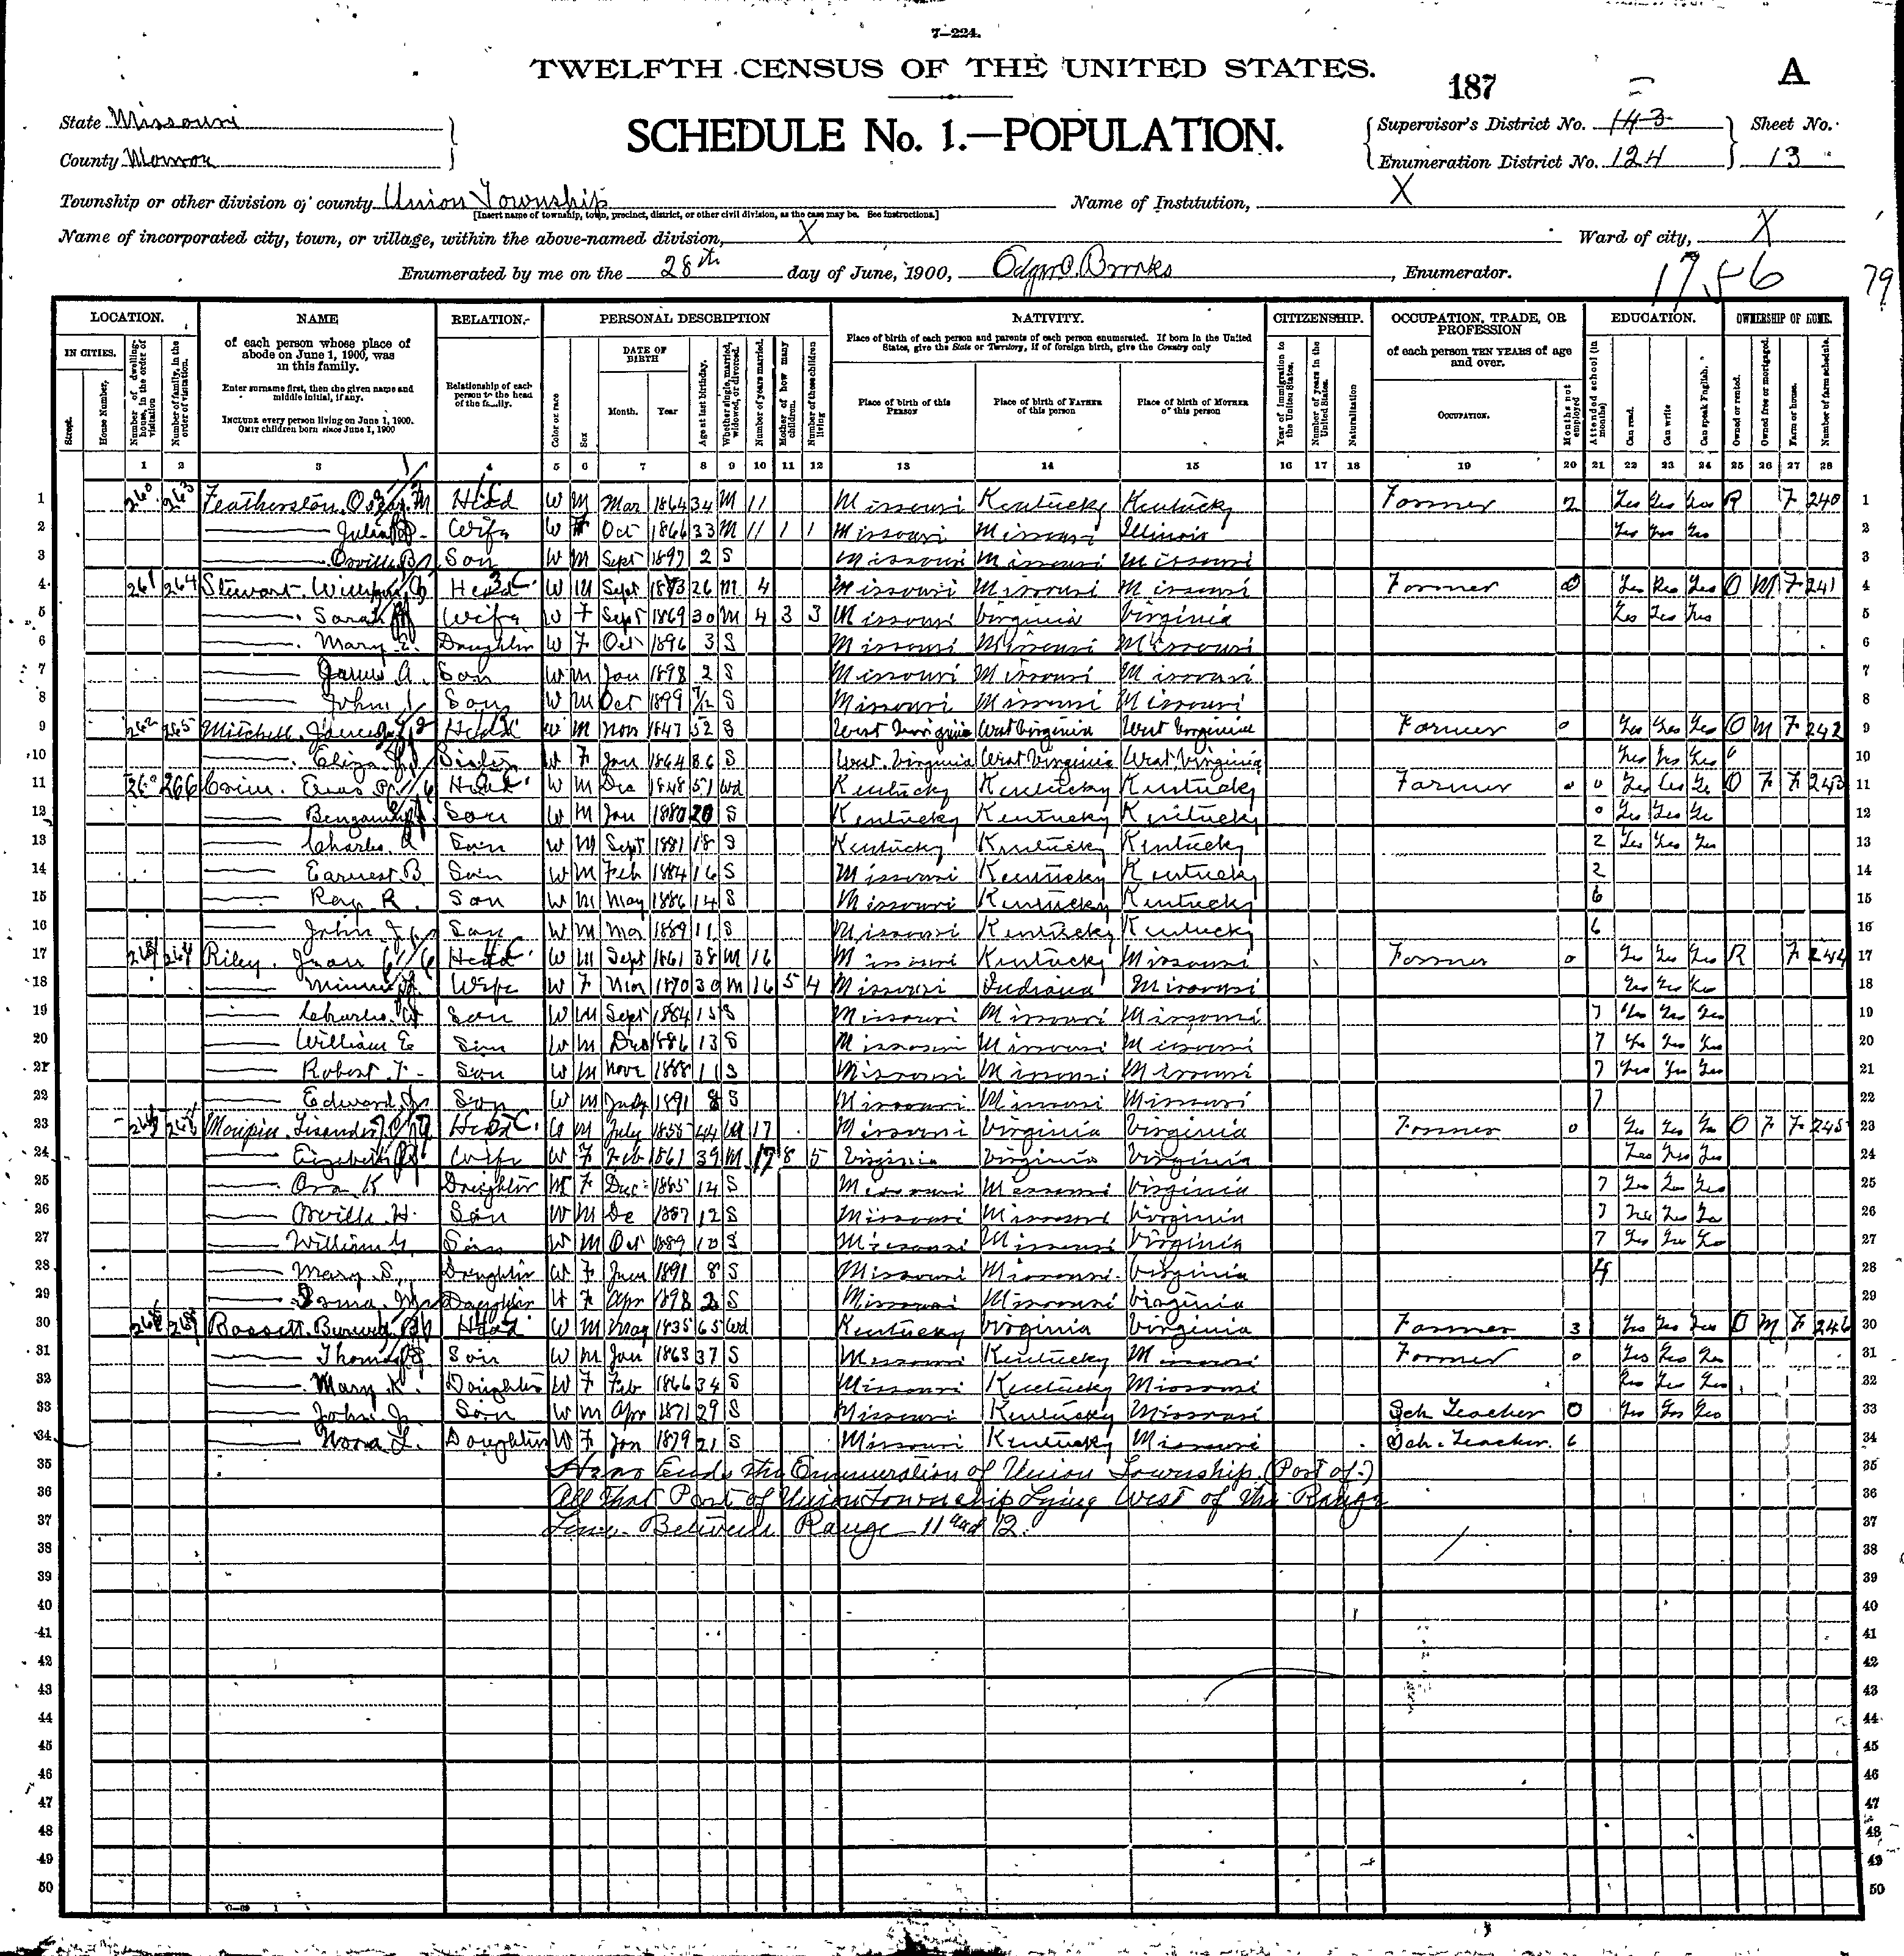 7—224.
TWELFTH CENSUS OF THE UNITED STATES.
187 A
State Missouri
SCHEDULE No. 1.—POPULATION.
Supervisor's District No. 143 Sheet No.
County Monroe
Enumeration District No. 124 13
Township or other division of county Union Township Name of Institution, X
[Insert name of township, town, precinct, district, or other civil division, as the case may be. See instructions.]
Name of incorporated city, town, or village, within the above-named division, X Ward of city, X
Enumerated by me on the 28th day of June, 1900, Brooks, Enumerator.
79
LOCATION. NAME RELATION. PERSONAL DESCRIPTION NATIVITY. CITIZENSHIP. OCCUPATION, TRADE, OR PROFESSION EDUCATION. OWNERSHIP OF HOME.
IN CITIES. Street. House Number. Number of dwelling-house, in the order of visitation Number of family, in the order of visitation.
of each person whose place of abode on June 1, 1900, was in this family.
Enter surname first, then the given name and middle initial, if any.
INCLUDE every person living on June 1, 1900. OMIT children born since June 1, 1900
Relationship of each person to the head of the family.
Color or race Sex DATE OF BIRTH Month. Year Age at last birthday. Whether single, married, widowed, or divorced. Number of years married. Mother of how many children. Number of these children living
Place of birth of each person and parents of each person enumerated. If born in the United States, give the State or Territory, if of foreign birth, give the Country only
Place of birth of this PERSON Place of birth of FATHER of this person Place of birth of MOTHER of this person
Year of immigration to the United States. Number of years in the United States. Naturalization
of each person TEN YEARS of age and over.
OCCUPATION. Months not employed
Attended school (in months) Can read. Can write Can speak English.
Owned or rented. Owned free or mortgaged. Farm or house. Number of farm schedule.
1 2 3 4 5 6 7 8 9 10 11 12 13 14 15 16 17 18 19 20 21 22 23 24 25 26 27 28
1 260 263 Featherston. M Head W M Mar 1864 34 M 11 Missouri Kentucky Kentucky Farmer 2 Yes Yes Yes R F 240 1
2 Julia Wife W F Oct 1866 33 M 11 1 1 Missouri Missouri Illinois Yes Yes Yes 2
3 Orville B Son W M Sept 1897 2 S Missouri Missouri Missouri 3
4 261 264 Stewart. Head W M Sept 1873 26 M 4 Missouri Missouri Missouri Farmer 0 Yes Yes Yes O M F 241 4
5 Sarah Wife W F Sept 1869 30 M 4 3 3 Missouri Virginia Virginia Yes Yes Yes 5
6 Mary E. Daughter W F Oct 1896 3 S Missouri Missouri Missouri 6
7 James A. Son W M Jan 1898 2 S Missouri Missouri Missouri 7
8 John Son W M Oct 1899 7/12 S Missouri Missouri Missouri 8
9 262 265 Mitchell. Head W M Nov 1847 52 S West Virginia West Virginia West Virginia Farmer 0 Yes Yes Yes O M F 242 9
10 Eliza Sister W F Jan 1864 36 S West Virginia West Virginia West Virginia Yes Yes Yes 10
11 266 Head W M Dec 1848 51 Wd Kentucky Kentucky Kentucky Farmer 0 0 Yes Yes Yes O F F 243 11
12 Son W M Jan 1880 20 S Kentucky Kentucky Kentucky 0 Yes Yes Yes 12
13 Charles Son W M Sept 1881 18 S Kentucky Kentucky Kentucky 2 Yes Yes Yes 13
14 Earnest B Son W M Feb 1884 16 S Missouri Kentucky Kentucky 2 14
15 Ray R. Son W M May 1886 14 S Missouri Kentucky Kentucky 6 15
16 John Son W M Mar 1889 11 S Missouri Kentucky Kentucky 6 16
17 Riley. Head W M Sept 1861 38 M 16 Missouri Kentucky Missouri Farmer 0 Yes Yes Yes R F 244 17
18 Minnie Wife W F Mar 1870 30 M 16 5 4 Missouri Indiana Missouri Yes Yes Yes 18
19 Charles Son W M Sept 1884 15 S Missouri Missouri Missouri 7 Yes Yes Yes 19
20 William E Son W M Dec 1886 13 S Missouri Missouri Missouri 7 Yes Yes Yes 20
21 Robert F. Son W M Nove 1888 11 S Missouri Missouri Missouri 7 Yes Yes Yes 21
22 Edward Son W M July 1891 8 S Missouri Missouri Missouri 7 22
23 Maupin. Head W M July 1855 44 M 17 Missouri Virginia Virginia Farmer 0 Yes Yes Yes O F F 245 23
24 Wife W F Feb 1861 39 M 17 8 5 Virginia Virginia Virginia Yes Yes Yes 24
25 Ora K Daughter W F Dec 1885 14 S Missouri Missouri Virginia 7 Yes Yes Yes 25
26 Orville H. Son W M De 1887 12 S Missouri Missouri Virginia 7 Yes Yes Yes 26
27 William G. Son W M Oct 1889 10 S Missouri Missouri Virginia 7 Yes Yes Yes 27
28 Mary S. Daughter W F June 1891 8 S Missouri Missouri Virginia 4 28
29 Daughter W F Apr 1898 2 S Missouri Missouri Virginia 29
30 Head W M May 1835 65 Wd Kentucky Virginia Virginia Farmer 3 Yes Yes Yes O M F 246 30
31 Thomas Son W M Jan 1863 37 S Missouri Kentucky Missouri Farmer 0 Yes Yes Yes 31
32 Mary K. Daughter W F Feb 1866 34 S Missouri Kentucky Missouri Yes Yes Yes 32
33 John J. Son W M Apr 1871 29 S Missouri Kentucky Missouri Sch Teacher 0 Yes Yes Yes 33
34 Nora L. Daughter W F Jan 1879 21 S Missouri Kentucky Missouri Sch. Teacher. 6 34
35 Ends the Enumeration of Union Township (Part of.) 35
36 All That Part of Union Township Lying West of the Range 36
37 Line Between Range 11 and 12. 37
38 38
39 39
40 40
41 41
42 42
43 43
44 44
45 45
46 46
47 47
48 48
49 49
50 50